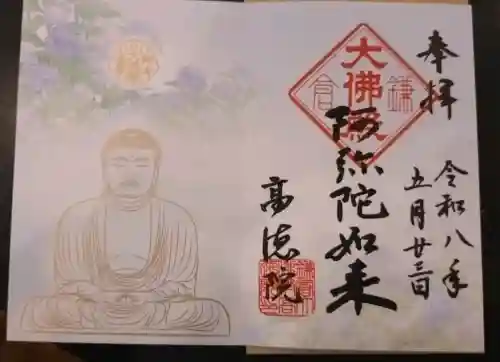 奉拝
令和八年
五月廿三日
大佛殿
鎌倉
阿弥陀如来
高徳院